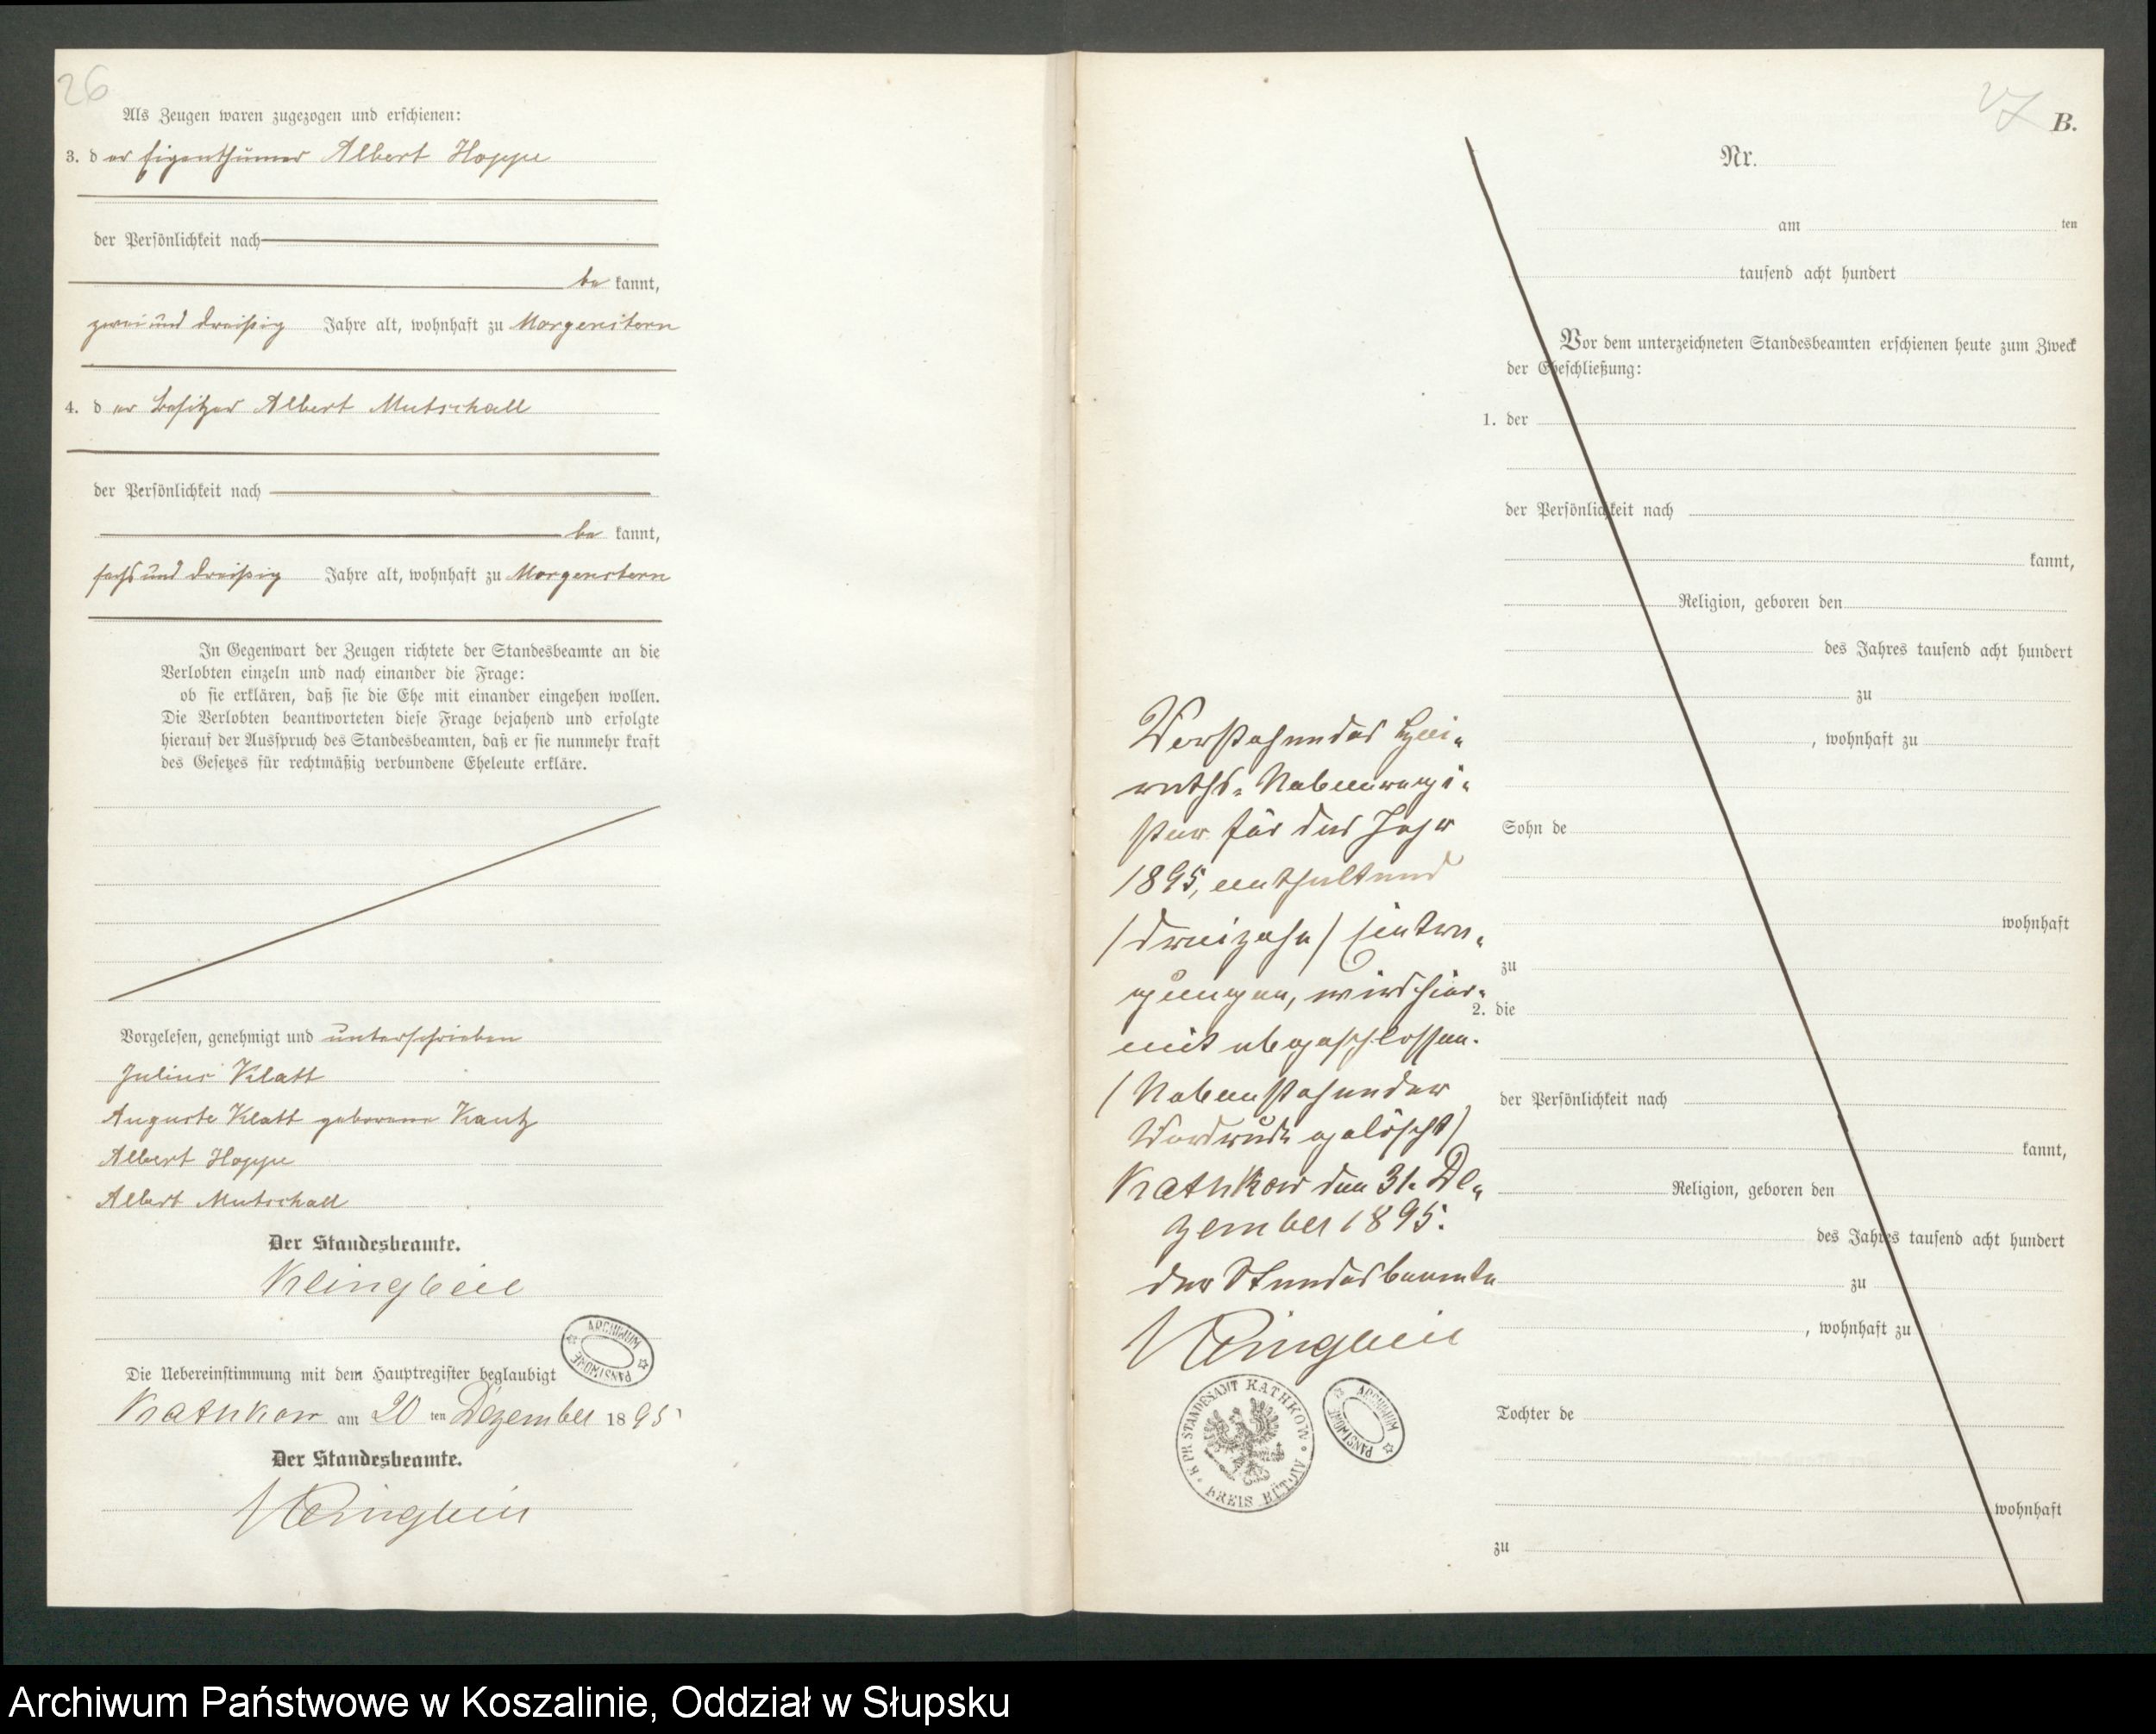 26
Als Zeugen waren zugezogen und erschienen:
3. der Eigenthümer Albert Hoppe
der Persönlichkeit nach
be kannt,
zwei und dreißig Jahre alt, wohnhaft zu Morgenstern
4. der Besitzer Albert Mutschall
der Persönlichkeit nach
be kannt,
sechs und dreißig Jahre alt, wohnhaft zu Morgenstern
In Gegenwart der Zeugen richtete der Standesbeamte an die
Verlobten einzeln und nach einander die Frage:
ob sie erklären, daß sie die Ehe mit einander eingehen wollen.
Die Verlobten beantworteten diese Frage bejahend und erfolgte
hierauf der Ausspruch des Standesbeamten, daß er sie nunmehr kraft
des Gesetzes für rechtmäßig verbundene Eheleute erkläre.
Vorgelesen, genehmigt und unterschrieben
Julius Klatt
Auguste Klatt geborene Kautz
Albert Hoppe
Albert Mutschall
Der Standesbeamte.
Klingbeil
ARCHIWUM PAŃSTWOWE
Die Uebereinstimmung mit dem Hauptregister beglaubigt
Kathkow am 20 ten Dezember 1895
Der Standesbeamte.
Klingbeil
27
B.
Nr.
am ten
tausend acht hundert
Vor dem unterzeichneten Standesbeamten erschienen heute zum Zweck
der Eheschließung:
1. der
der Persönlichkeit nach
kannt,
Religion, geboren den
des Jahres tausend acht hundert
zu
, wohnhaft zu
Sohn de
wohnhaft
zu
2. die
der Persönlichkeit nach
kannt,
Religion, geboren den
des Jahres tausend acht hundert
zu
, wohnhaft zu
Tochter de
wohnhaft
zu
Vorstehendes Hei-
raths-Nebenregi-
ster für das Jahr
1895, enthaltend
/dreizehn/ Eintra-
gungen, wird hier-
mit abgeschlossen.
/Nebenstehender
Vordruck gelöscht/
Kathkow den 31. De-
zember 1895.
Der Standesbeamte
Klingbeil
K. PR. STANDESAMT KATHKOW · KREIS BÜTOW
ARCHIWUM PAŃSTWOWE
Archiwum Państwowe w Koszalinie, Oddział w Słupsku